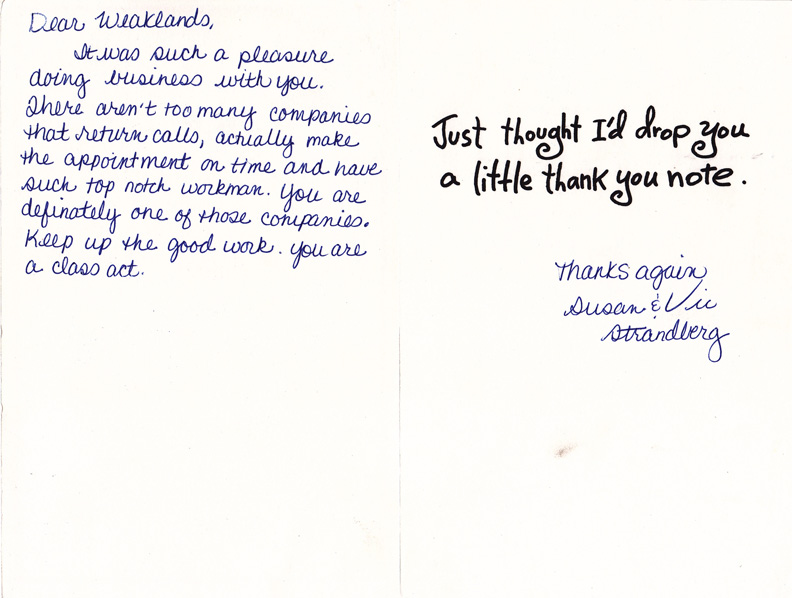 Dear Weaklands,
It was such a pleasure
doing business with you.
There aren't too many companies
that return calls, actually make
the appointment on time and have
such top notch workman. You are
definately one of those companies.
Keep up the good work. You are
a class act.
Just thought I'd drop you
a little thank you note.
Thanks again
Susan & Vic
Strandberg